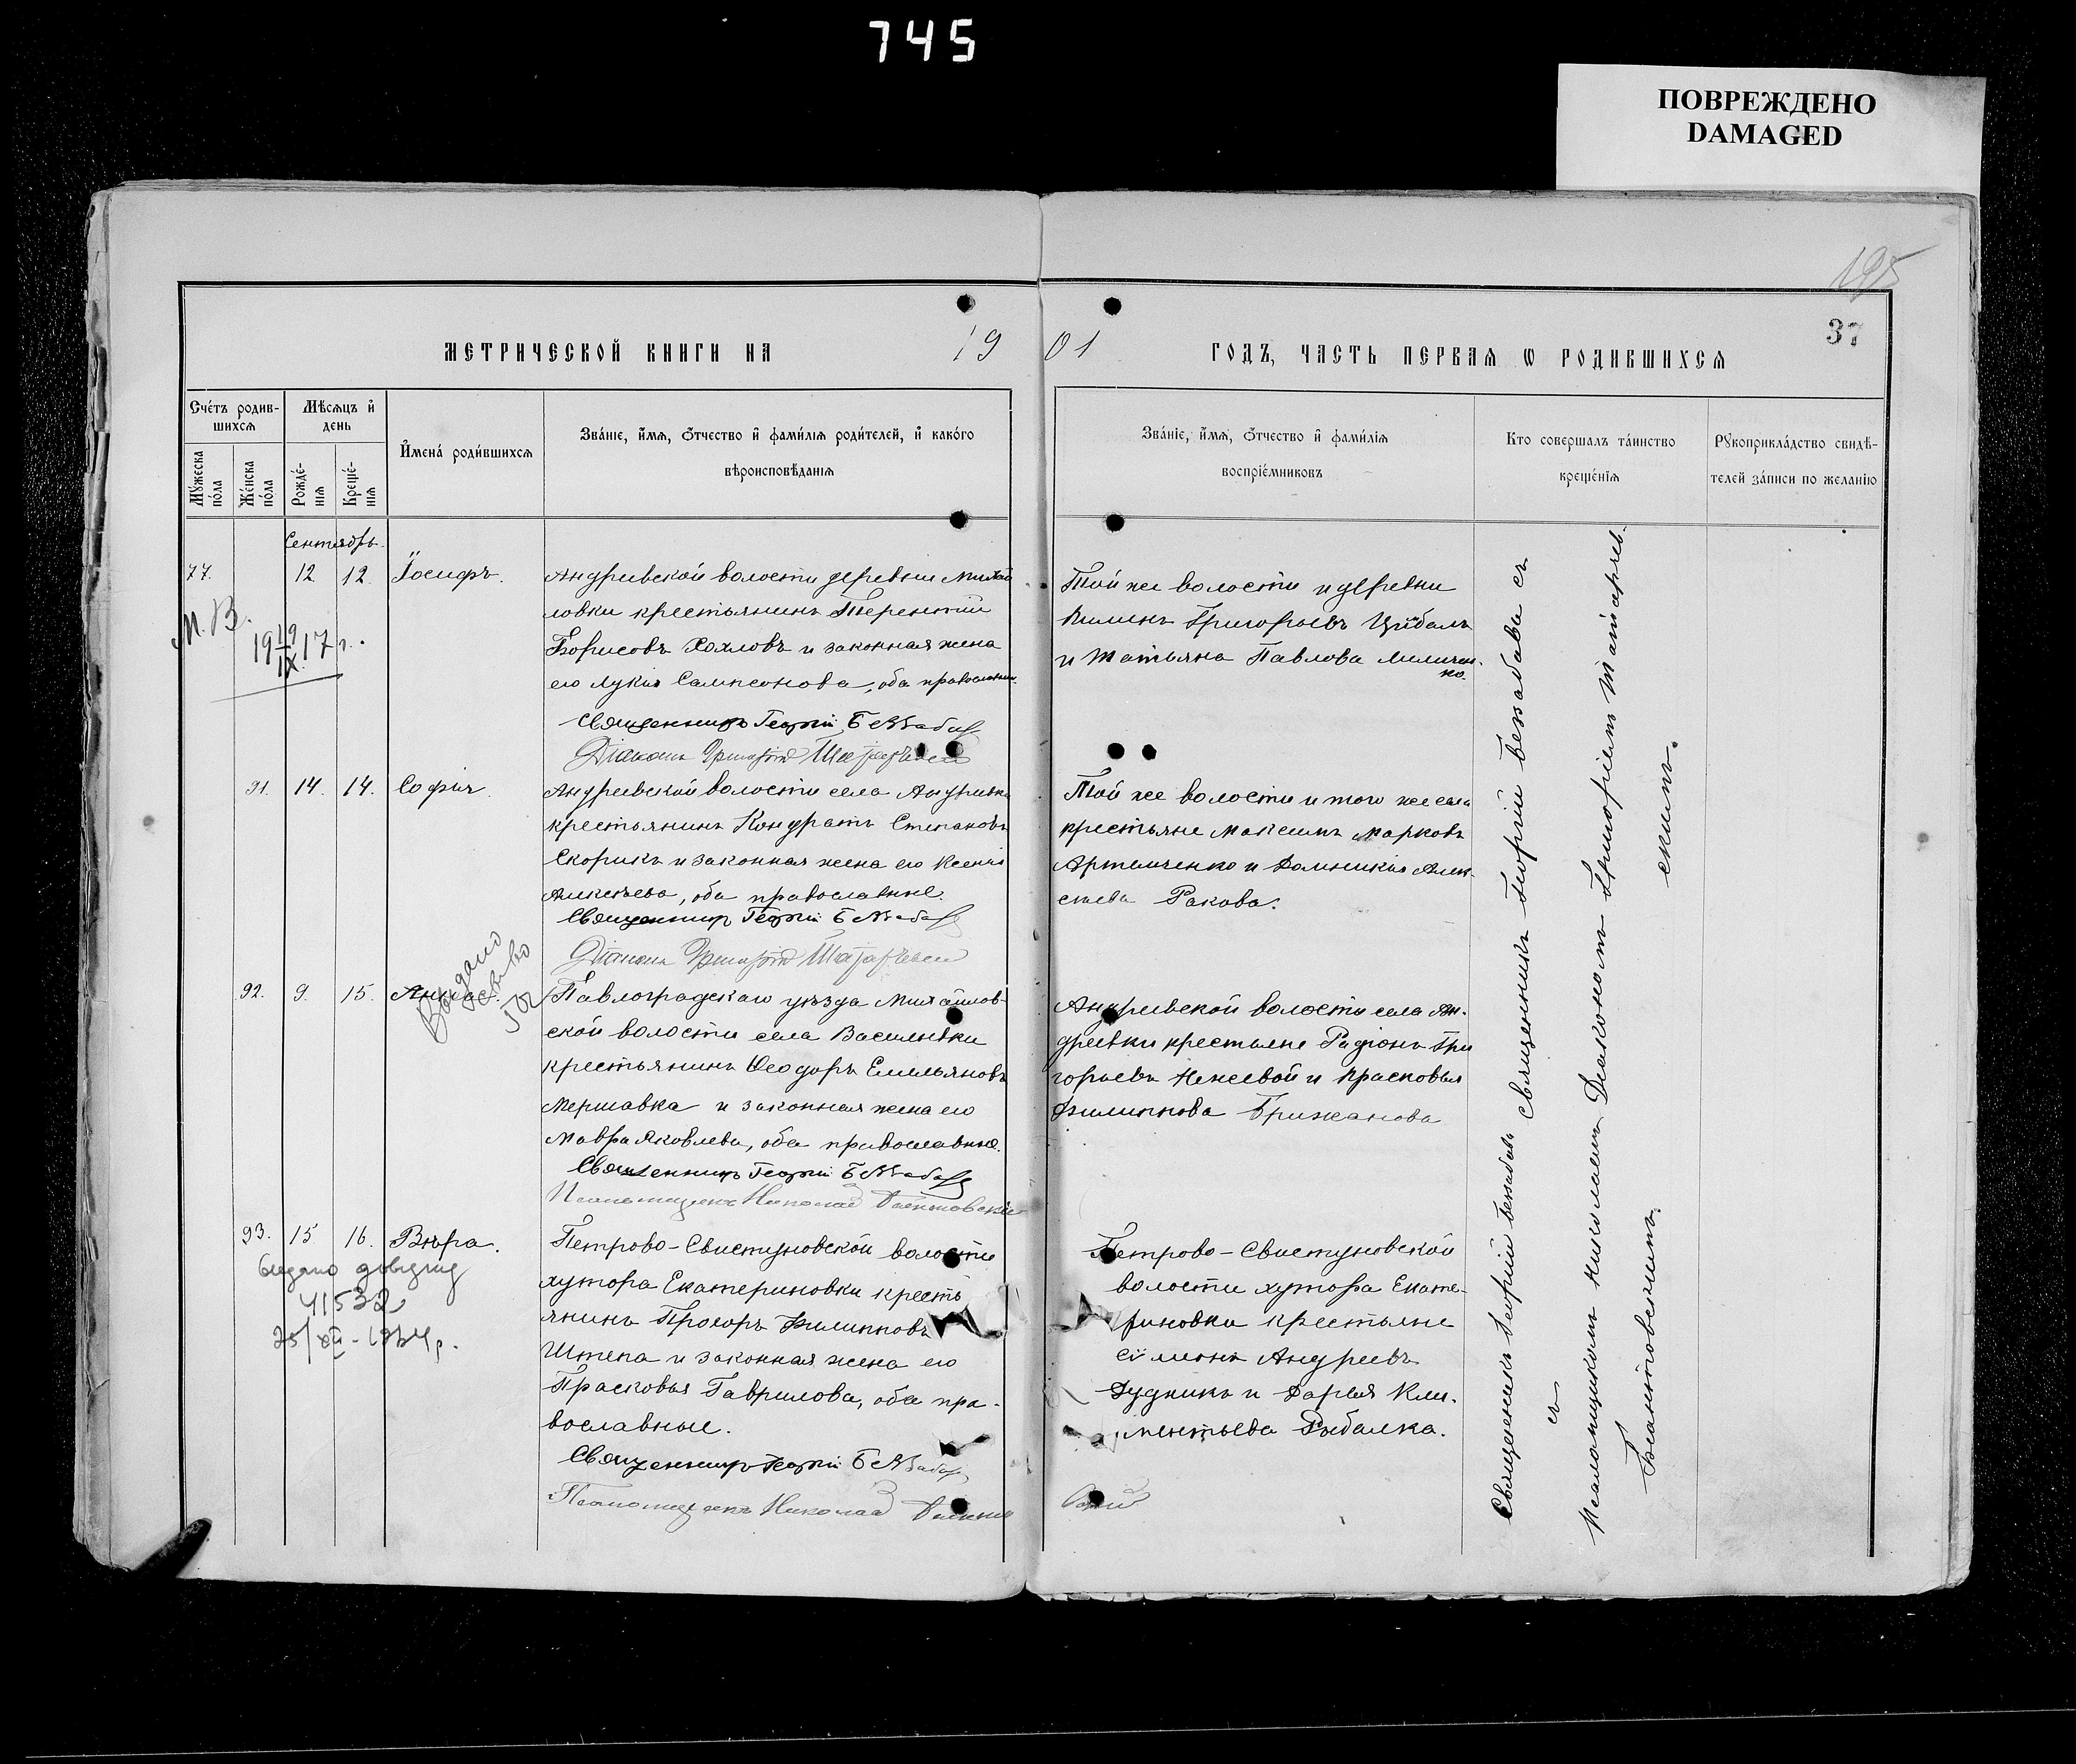 745
ПОВРЕЖДЕНО
DAMAGED
195
37
МЕТРИЧЕСКОЙ КНИГИ НА 1901 ГОДЪ, ЧАСТЬ ПЕРВАЯ Ѡ РОДИВШИХСЯ
Счетъ родив-
шихся
Мужеска
пола
Женска
пола
Мѣсяцъ и
день
Рожде-
нія
Креще-
нія
Имена родившихся
Званіе, имя, отчество и фамилія родителей, и какого
вѣроисповѣданія
Званіе, имя, отчество и фамилія
воспріемниковъ
Кто совершалъ таинство
крещенія
Рукоприкладство свидѣ-
телей записи по желанію
Сентябрь.
77. 12 12. Іосифъ.
М. В.
19 19/IX 17 г.
Андреевской волости деревни Михай
ловки крестьянинъ Терентій
Борисовъ Хохловъ и законная жена
его Лукія Сампсонова, оба православн.
Священникъ Георгій Беззабав
Діаконъ Григорій
Той же волости и деревни
Пименъ Григорьевъ Цыбаль
и Татьяна Павлова
91. 14. 14. Софія.
Андреевской волости села Андреевки
крестьянинъ Кондратъ Степановъ
Скорикъ и законная жена его Ксенія
Алексѣева, оба православные.
Священникъ Георгій Беззабав
Діаконъ Григорій
Той же волости и того же села
крестьяне Максимъ Марковъ
Артемченко и Домникія Алек-
сѣева Ракова.
92. 9. 15. Анна.
Выдано
Павлоградскаго уѣзда Михайлов-
ской волости села Васильевки
крестьянинъ Ѳеодоръ Емельяновъ
Мершавка и законная жена его
Мавра Яковлева, оба православные.
Священникъ Георгій Беззабав
Псаломщикъ Николай
Андреевской волости села Ан-
дреевки крестьяне Радіонъ Гри
горьевъ и Прасковья
Филиппова Брижанова
93. 15 16. Вѣра.
видано довідку
41532
25/XII-1934р.
Петрово-Свистуновской волости
хутора Екатериновки кресть
янинъ Прохоръ Филипповъ
Штепа и законная жена его
Прасковья Гаврилова, оба пра-
вославные.
Священникъ Георгій Беззабав
Псаломщикъ Николай
Петрово-Свистуновской
волости хутора Екате-
риновки крестьяне
Сімеонъ Андреевъ
Дудникъ и Дарья Кли-
ментьева Рыбалка.
Священникъ Георгій Беззабава съ
Діакономъ Григоріемъ
Священникъ Георгій Беззабава
съ
Псаломщикомъ Николаемъ